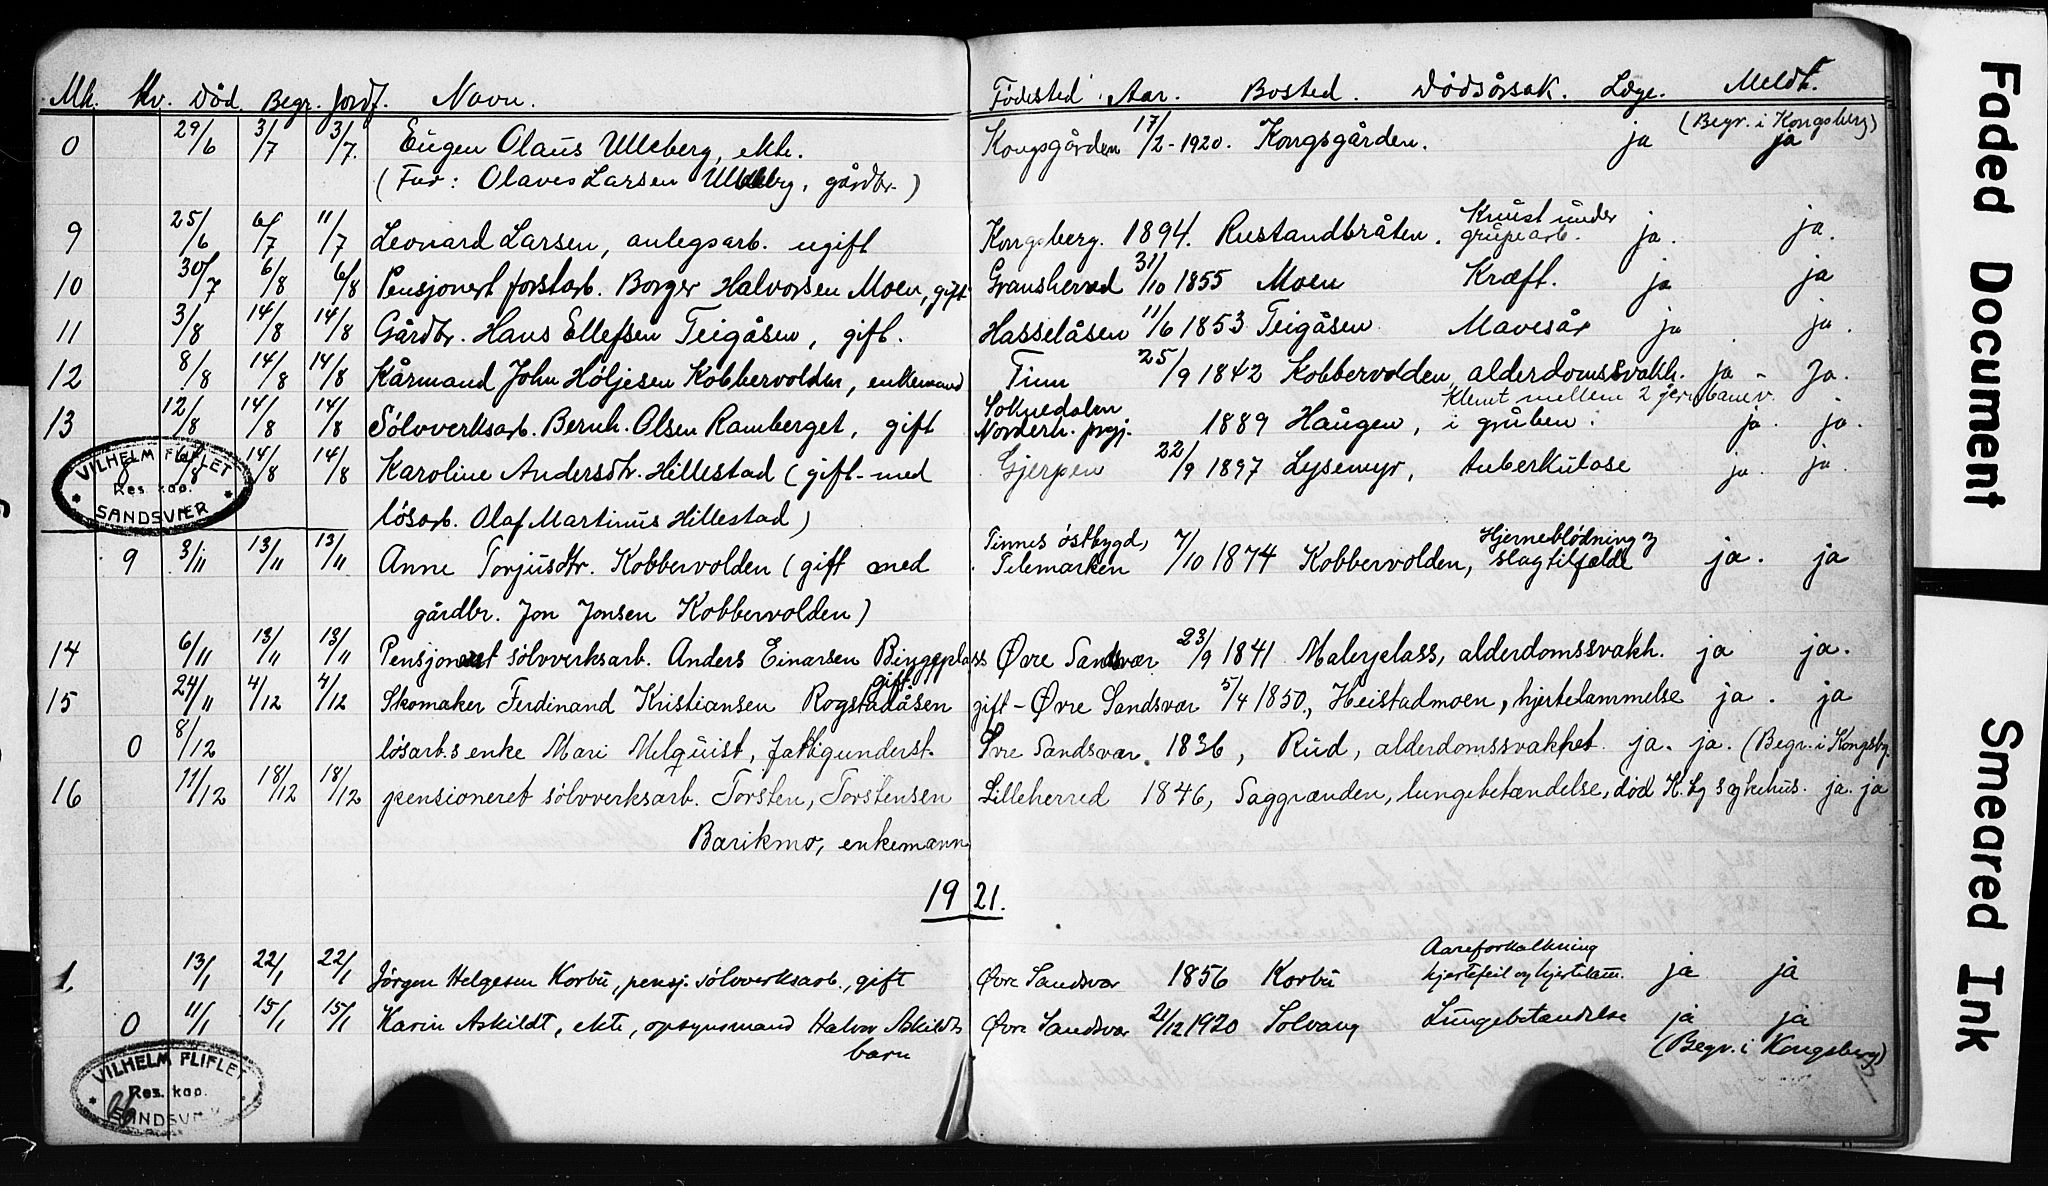 Mk. Kv. Død. Begr. Jordf. Navn. Fødested. Aar. Bosted. Dødsårsak. Læge. Meldt.
0 29/6 3/7 3/7. Eugen Olaus Ulleberg, ekte. Kongsgården 17/2-1920. Kongsgården. ja (Begr. i Kongsberg) ja
(Far: Olaves Larsen Ulleberg, gårdbr.)
9 25/6 6/7 11/7 Leonard Larsen, anlegsarb. ugift Kongsberg. 1894. Rustandbråten. Knust under grubearb. ja. ja.
10 30/7 6/8 6/8 Pensjonert forstarb. Borger Halvorsen Moen, gift Gransherred 31/10 1855 Moen Kræft. ja ja
11 3/8 14/8 14/8 Gårdbr. Hans Ellefsen Teigåsen, gift. Hasselåsen 11/6 1853 Teigåsen Mavesår ja ja.
12 8/8 14/8 14/8 Kårmand John Høljesen Kobbervolden, enkemand Tinn 25/9 1842 Kobbervolden, alderdomssvakh. ja - ja.
13 12/8 14/8 14/8 Sølvverksarb. Bernh. Olsen Ramberget, gift Soknedalen Norderh. prgj. 1889 Haugen, Klemt mellem 2 jernbanev. i gruben. ja. ja.
8 14/8 14/8 Karoline Andersdtr. Hillestad (gift med Gjerpen 22/9 1897 Lysemyr, Tuberkulose ja. ja.
løsarb. Olaf Martinus Hillestad)
9 3/11 13/11 13/11 Anne Torjusdtr. Kobbervolden (gift med Tinnes østbygd, Telemarken 7/10 1874 Kobbervolden, Hjerneblødning og slagtilfælde ja. ja
gårdbr. Jon Jonsen Kobbervolden)
14 6/11 13/11 13/11 Pensjonert sølvverksarb. Anders Einarsen Bingeplass gift Øvre Sandsvær 23/9 1841 Malerplass, alderdomssvakh. ja ja.
15 24/11 4/12 4/12 Skomaker Ferdinand Kristiansen Rogstadåsen gift - Øvre Sandsvær 5/4 1850, Heistadmoen, hjertelammelse ja. ja
0 8/12 løsarb.s enke Mari Melquist, fattigunderst. Øvre Sandsvær. 1836, Rud, alderdomssvakhet. ja. ja. (Begr. i Kongsbg.
16 11/12 18/12 18/12 pensioneret sølvverksarb. Torsten Torstensen Lilleherred 1846, Saggrenden, lungebetændelse, død K.bg sykehus. ja. ja
Barikmo, enkemann
1921.
1. 13/1 22/1 22/1 Jørgen Helgesen Korbu, pensj. sølvverksarb., gift Øvre Sandsvær 1856 Korbu Aareforkalkning hjertefeil og hjertelam. ja ja
0 11/1 15/1 15/1 Karin Askildt, ekte, opsynsmand Halvor Askildts Øvre Sandsvær 21/12 1920 Solvang Lungebetændelse ja ja
barn (Begr. i Kongsberg)
VILHELM FLIFLET
Res. kap.
SANDSVÆR
VILHELM FLIFLET
Res. kap.
SANDSVÆR
Faded Document
Smeared Ink